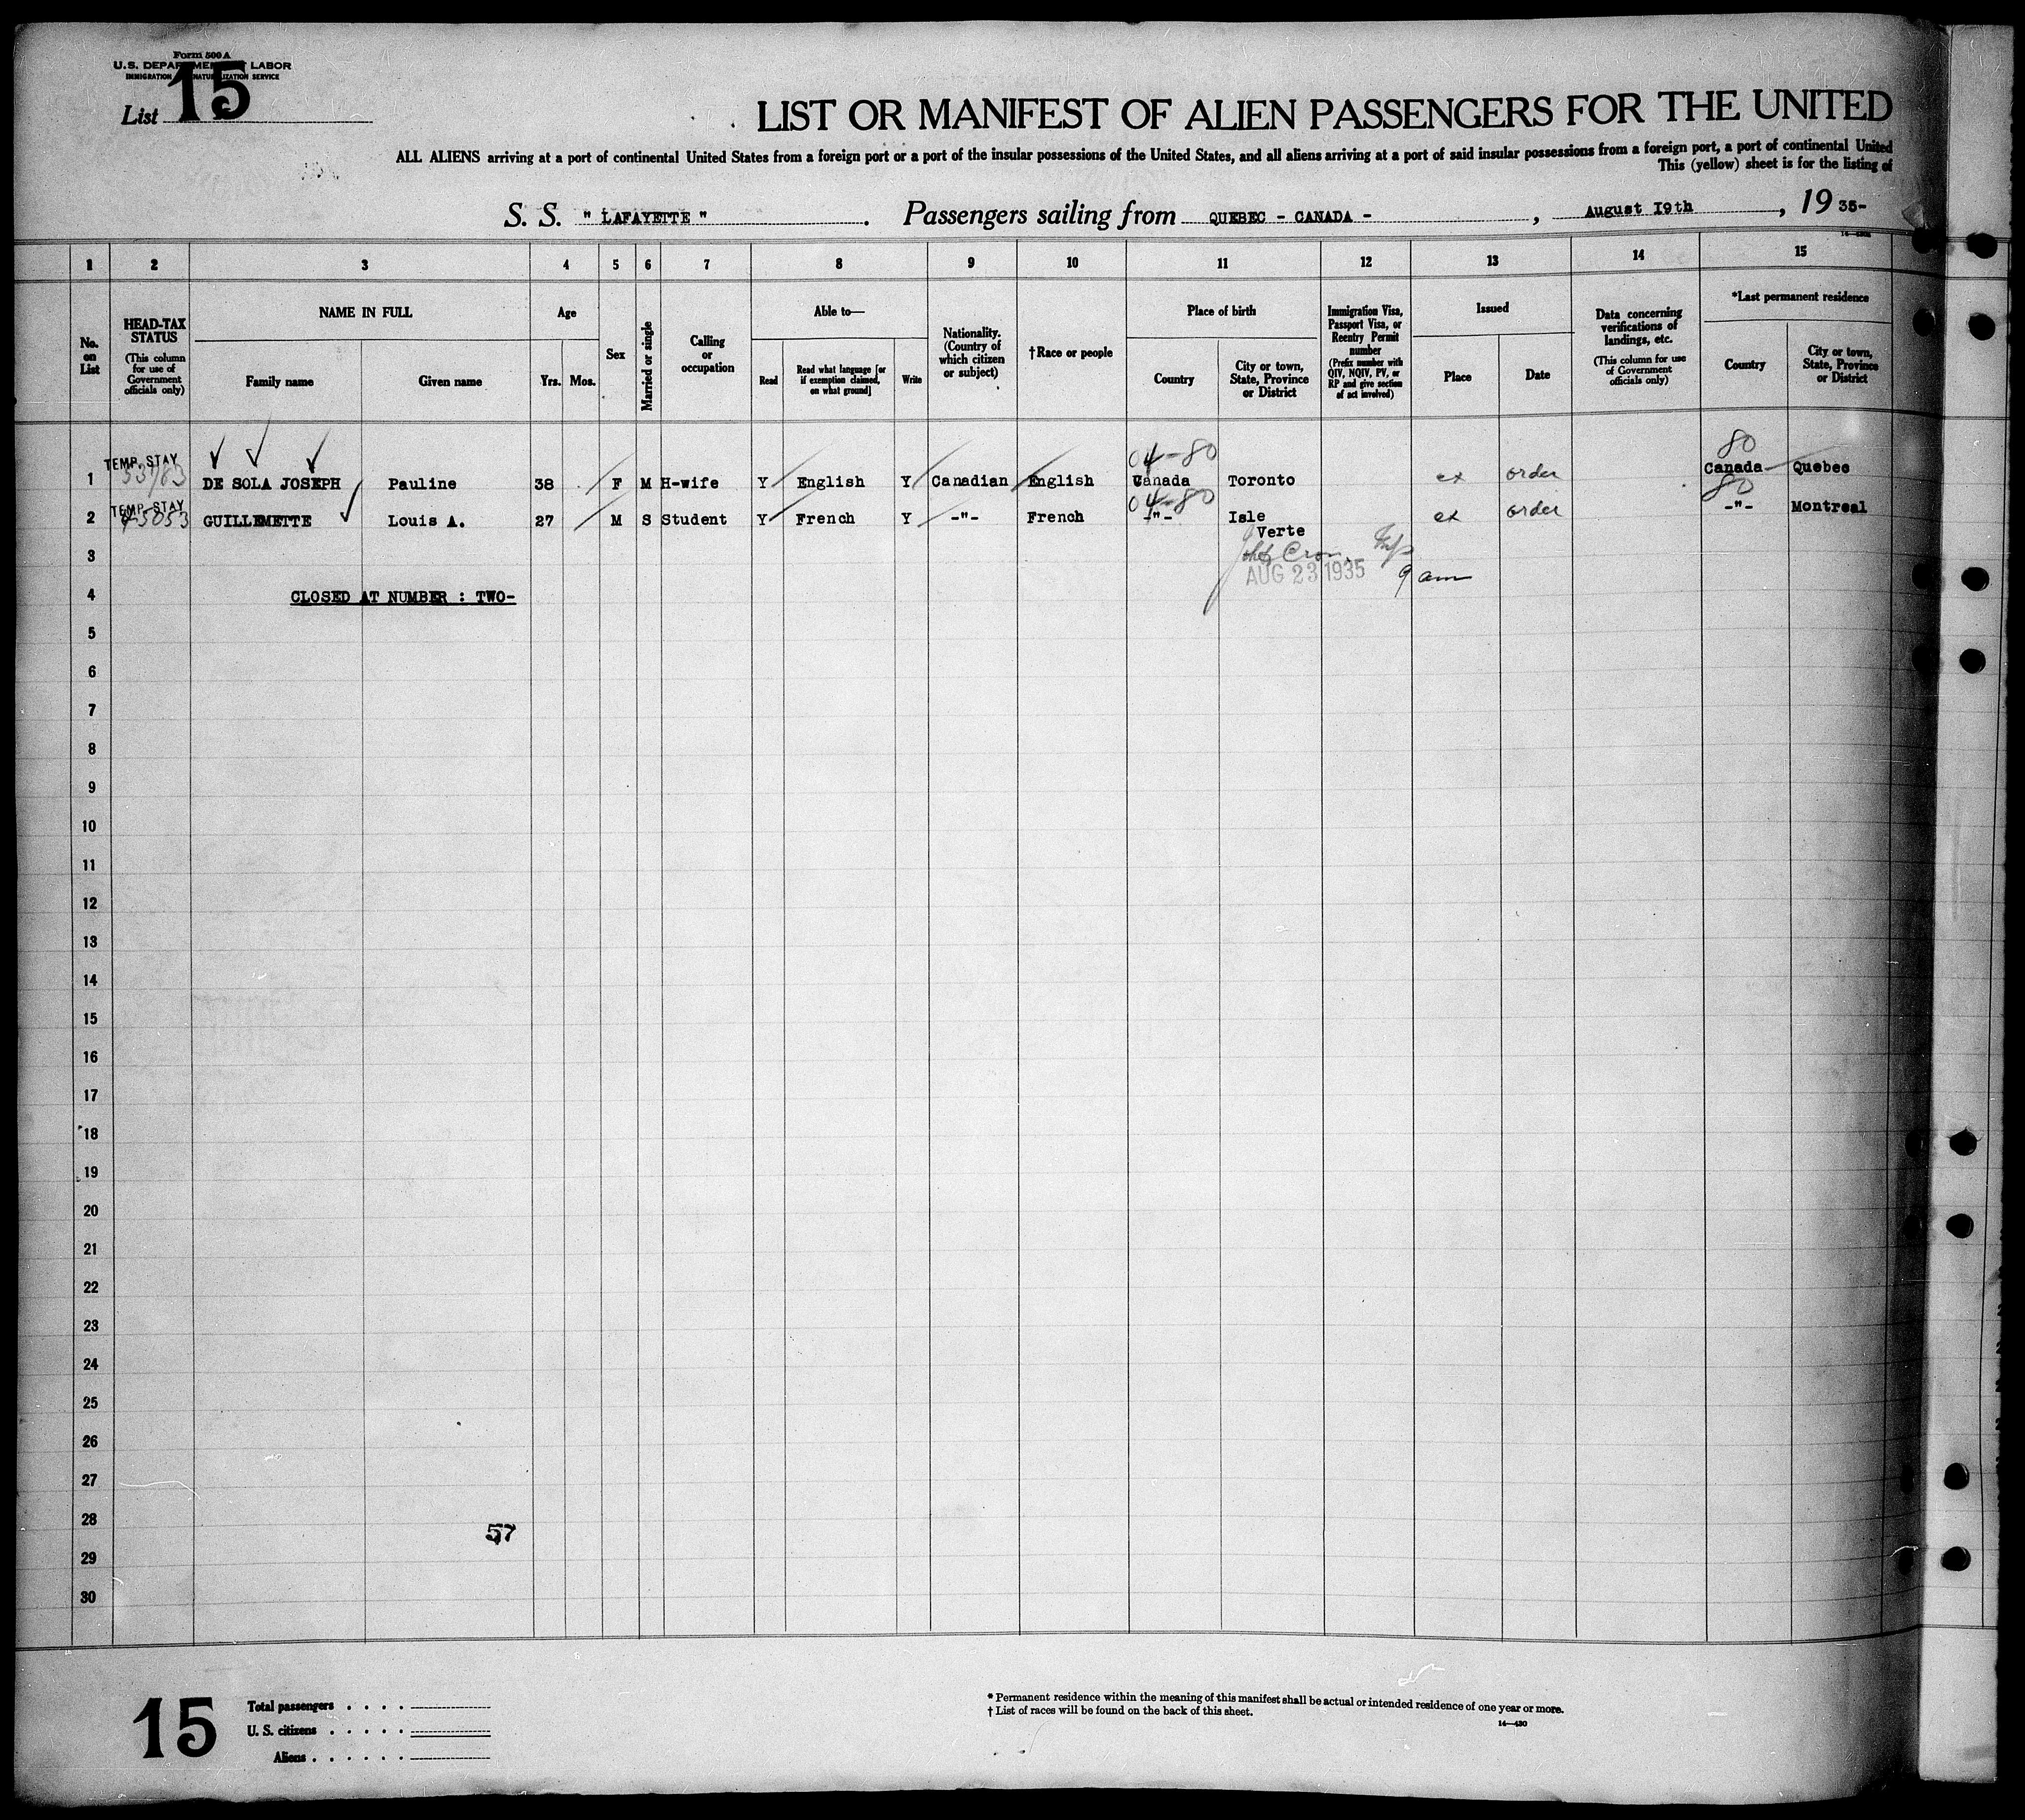 Form 500 A
U.S. DEPARTMENT OF LABOR
IMMIGRATION AND NATURALIZATION SERVICE
List 15
LIST OR MANIFEST OF ALIEN PASSENGERS FOR THE UNITED
ALL ALIENS arriving at a port of continental United States from a foreign port or a port of the insular possessions of the United States, and all aliens arriving at a port of said insular possessions from a foreign port, a port of continental United
This (yellow) sheet is for the listing of
S. S. " LAFAYETTE ". Passengers sailing from QUEBEC - CANADA - , August I9th , 19 35-
1 2 3 4 5 6 7 8 9 10 11 12 13 14 15
No. on List
HEAD-TAX STATUS
(This column for use of Government officials only)
NAME IN FULL
Family name
Given name
Age
Yrs. Mos.
Sex
Married or single
Calling or occupation
Able to—
Read
Read what language [or if exemption claimed, on what ground]
Write
Nationality. (Country of which citizen or subject)
†Race or people
Place of birth
Country
City or town, State, Province or District
Immigration Visa, Passport Visa, or Reentry Permit number
(Prefix number with QIV, NQIV, PV, or RP and give section of act involved)
Issued
Place
Date
Data concerning verifications of landings, etc.
(This column for use of Government officials only)
*Last permanent residence
Country
City or town, State, Province or District
TEMP STAY 04-80 80
1 DE SOLA JOSEPH Pauline 38 F M H-wife Y English Y Canadian English Canada Toronto ex order Canada Quebec
TEMP STAY 04-80 80
2 GUILLEMETTE Louis A. 27 M S Student Y French Y -"- French -"- Isle Verte ex order -"- Montreal
3
AUG 23 1935 9 am
4 CLOSED AT NUMBER : TWO-
5
6
7
8
9
10
11
12
13
14
15
16
17
18
19
20
21
22
23
24
25
26
27
28
57
29
30
15
Total passengers . . . .
U. S. citizens . . . . .
Aliens . . . . . .
* Permanent residence within the meaning of this manifest shall be actual or intended residence of one year or more.
† List of races will be found on the back of this sheet.
14—430